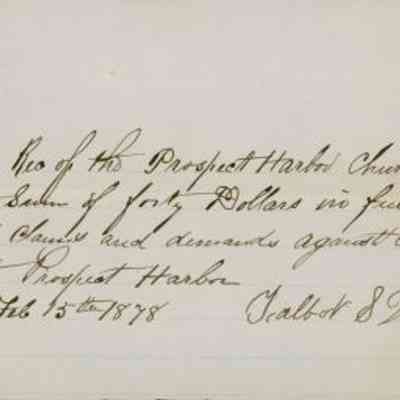 Rec of the Prospect Harbor Chur
Sum of forty Dollars in fu
claims and demands against
Prospect Harbor
Feb 15th 1878 Talbot S